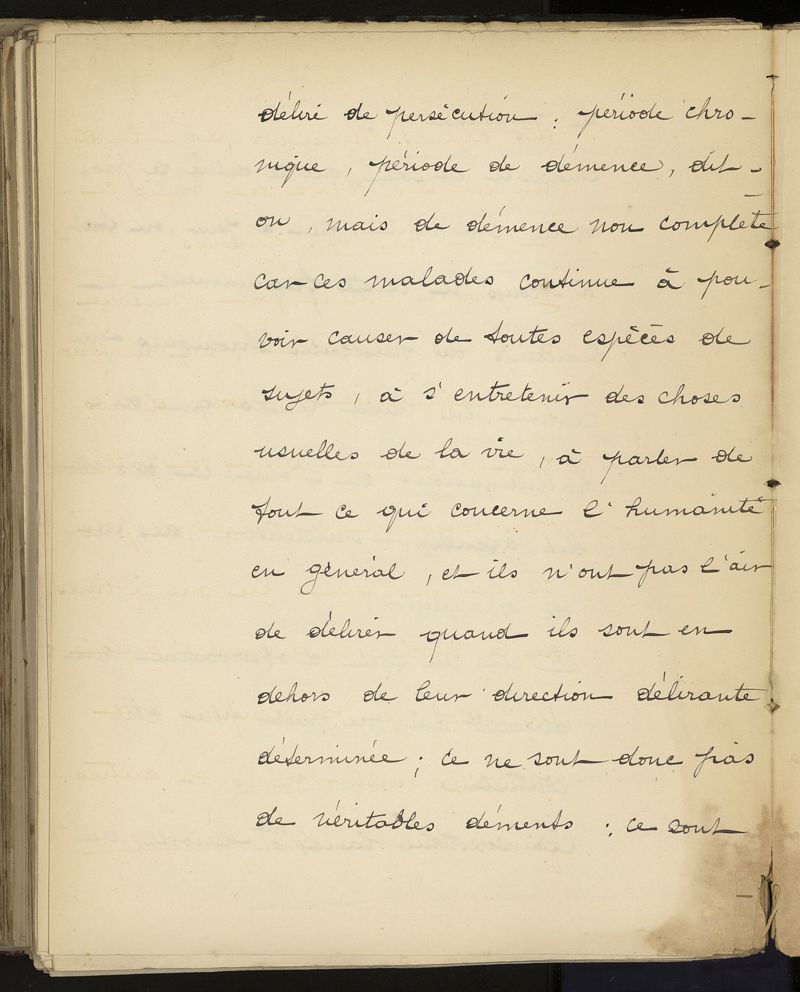 délire de persécution : période chro-
nique, période de démence, dit-
on, mais de démence non complète
car ces malades continue à pou-
voir causer de toutes espèces de
sujets, à s'entretenir des choses
usuelles de la vie, à parler de
tout ce qui concerne l'humanité
en général, et ils n'ont pas l'air
de délirer quand ils sont en
dehors de leur direction délirante
déterminée ; ce ne sont donc pas
de véritables déments : ce sont